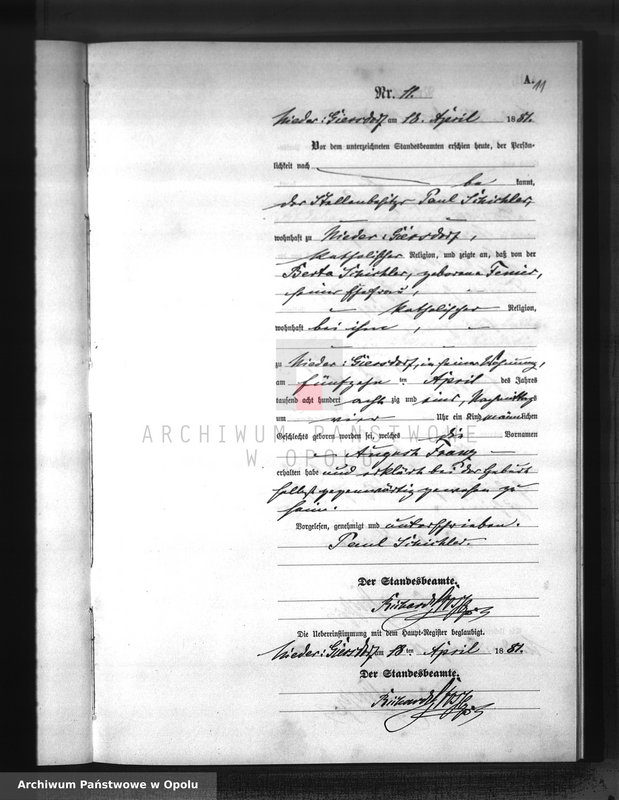 A.
11
Nr. 11.
Nieder: Giersdorf am 18. April 1881.
Vor dem unterzeichneten Standesbeamten erschien heute, der Persön-
lichkeit nach
be kannt,
der Stellenbesitzer Paul
wohnhaft zu Nieder: Giersdorf,
katholischer Religion, und zeigte an, daß von der
Berta geborene
seiner Ehefrau,
katholischer Religion,
wohnhaft bei ihm,
zu Nieder: Giersdorf, in seiner Wohnung,
am fünfzehn ten April des Jahres
tausend acht hundert acht zig und eins, Nachmittags
um vier Uhr ein Kind männlichen
Geschlechts geboren worden sei, welches die Vornamen
August Franz
erhalten habe und erklärte bei der Geburt
selbst gegenwärtig gewesen zu
sein.
Vorgelesen, genehmigt und unterschrieben.
Paul
Der Standesbeamte.
Die Uebereinstimmung mit dem Haupt-Register beglaubigt.
Nieder: Giersdorf am 18 ten April 1881.
Der Standesbeamte.
ARCHIWUM PAŃSTWOWE
W OPOLU
Archiwum Państwowe w Opolu